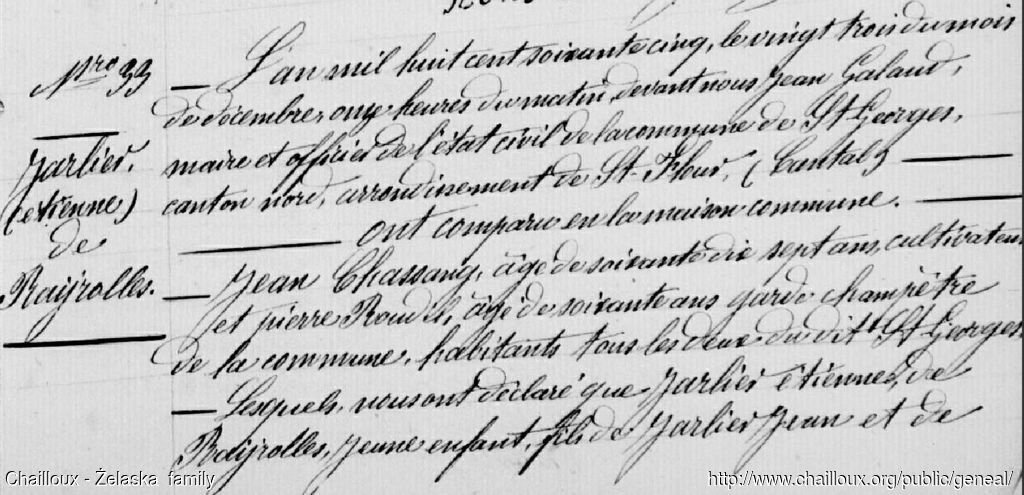 Nro 33
Jarlier.
(etienne)
de
Rayrolles.
— L'an mil huit cent soixante cinq, le vingt trois du mois
de décembre, onze heures du matin, devant nous Jean Galaud,
maire et officier de l'état civil de la commune de St Georges,
canton nord, arrondissement de St-Flour, (Cantal)
ont comparu en la maison commune.
— Jean Chassang, âgé de soixante dix sept ans, cultivateur
et pierre Roudil, âgé de soixante ans garde champêtre
de la commune, habitants tous les deux du dit St Georges
— Lesquels, nous ont déclaré que Jarlier étienne, de
Rayrolles, Jeune enfant, fils de Jarlier Jean et de
Chailloux - Żelaska family
http://www.chailloux.org/public/geneal/